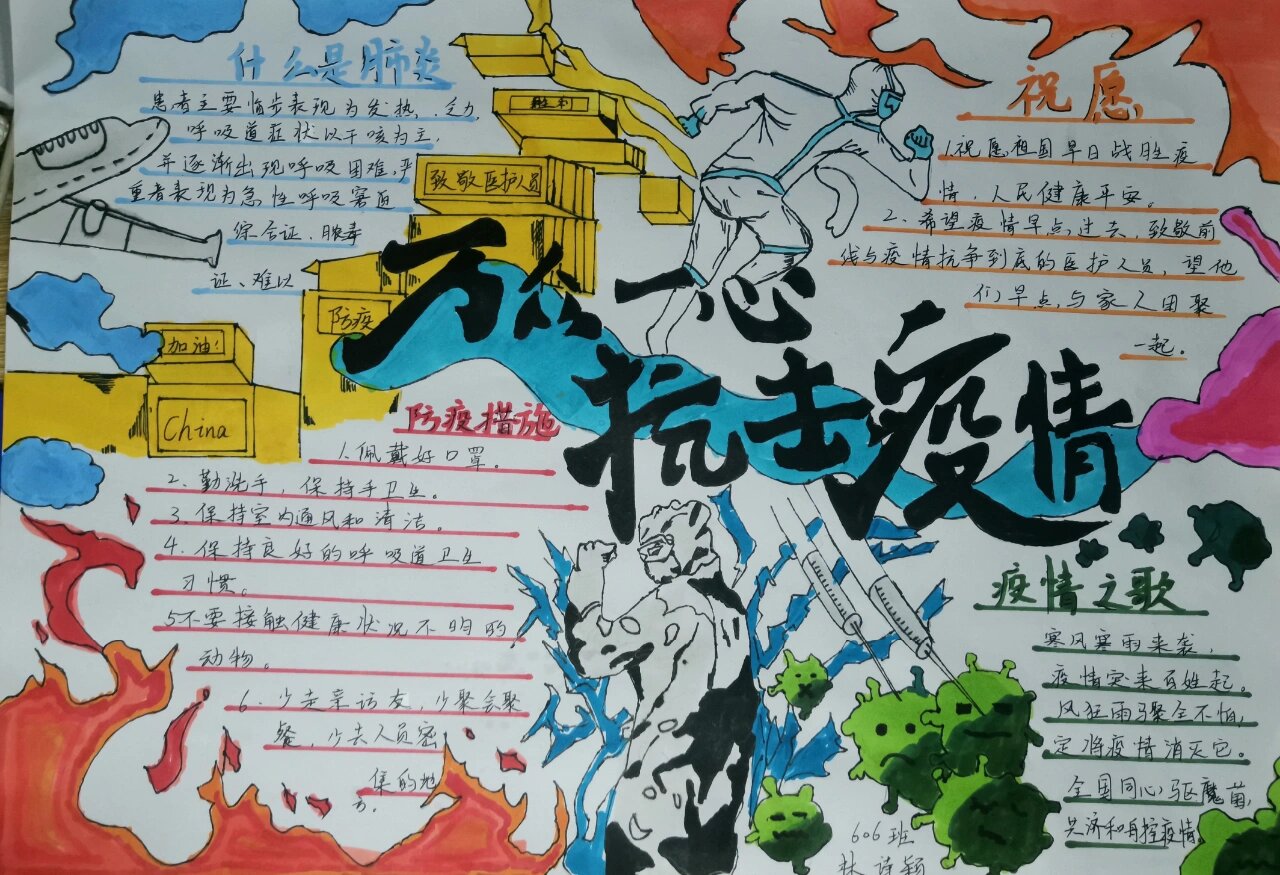 什么是肺炎
患者主要临步表现为发热、乏力,
呼吸道症状以干咳为主,
并逐渐出现呼吸困难,严
重者表现为急性呼吸窘迫
综合证、脓毒
证、难以
胜利
致敬医护人员
防疫
加油!
China
万众一心
抗击疫情
祝愿
1.祝愿祖国早日战胜疫
情,人民健康平安。
2、希望疫情早点过去,致敬前
线与疫情抗争到底的医护人员,望他
们早点与家人团聚
一起。
防疫措施
1.佩戴好口罩。
2、勤洗手,保持手卫生。
3、保持室内通风和清洁。
4、保持良好的呼吸道卫生
习惯。
5不要接触健康状况不明的
动物。
6、少走亲访友,少聚会聚
餐,少去人员密
集的地
方.
疫情之歌
寒风寒雨来袭,
疫情突来百姓起。
风狂雨骤全不怕,
定将疫情消灭它。
全国同心驱魔菌,
共济和舟控疫情。
606班
林诗颖